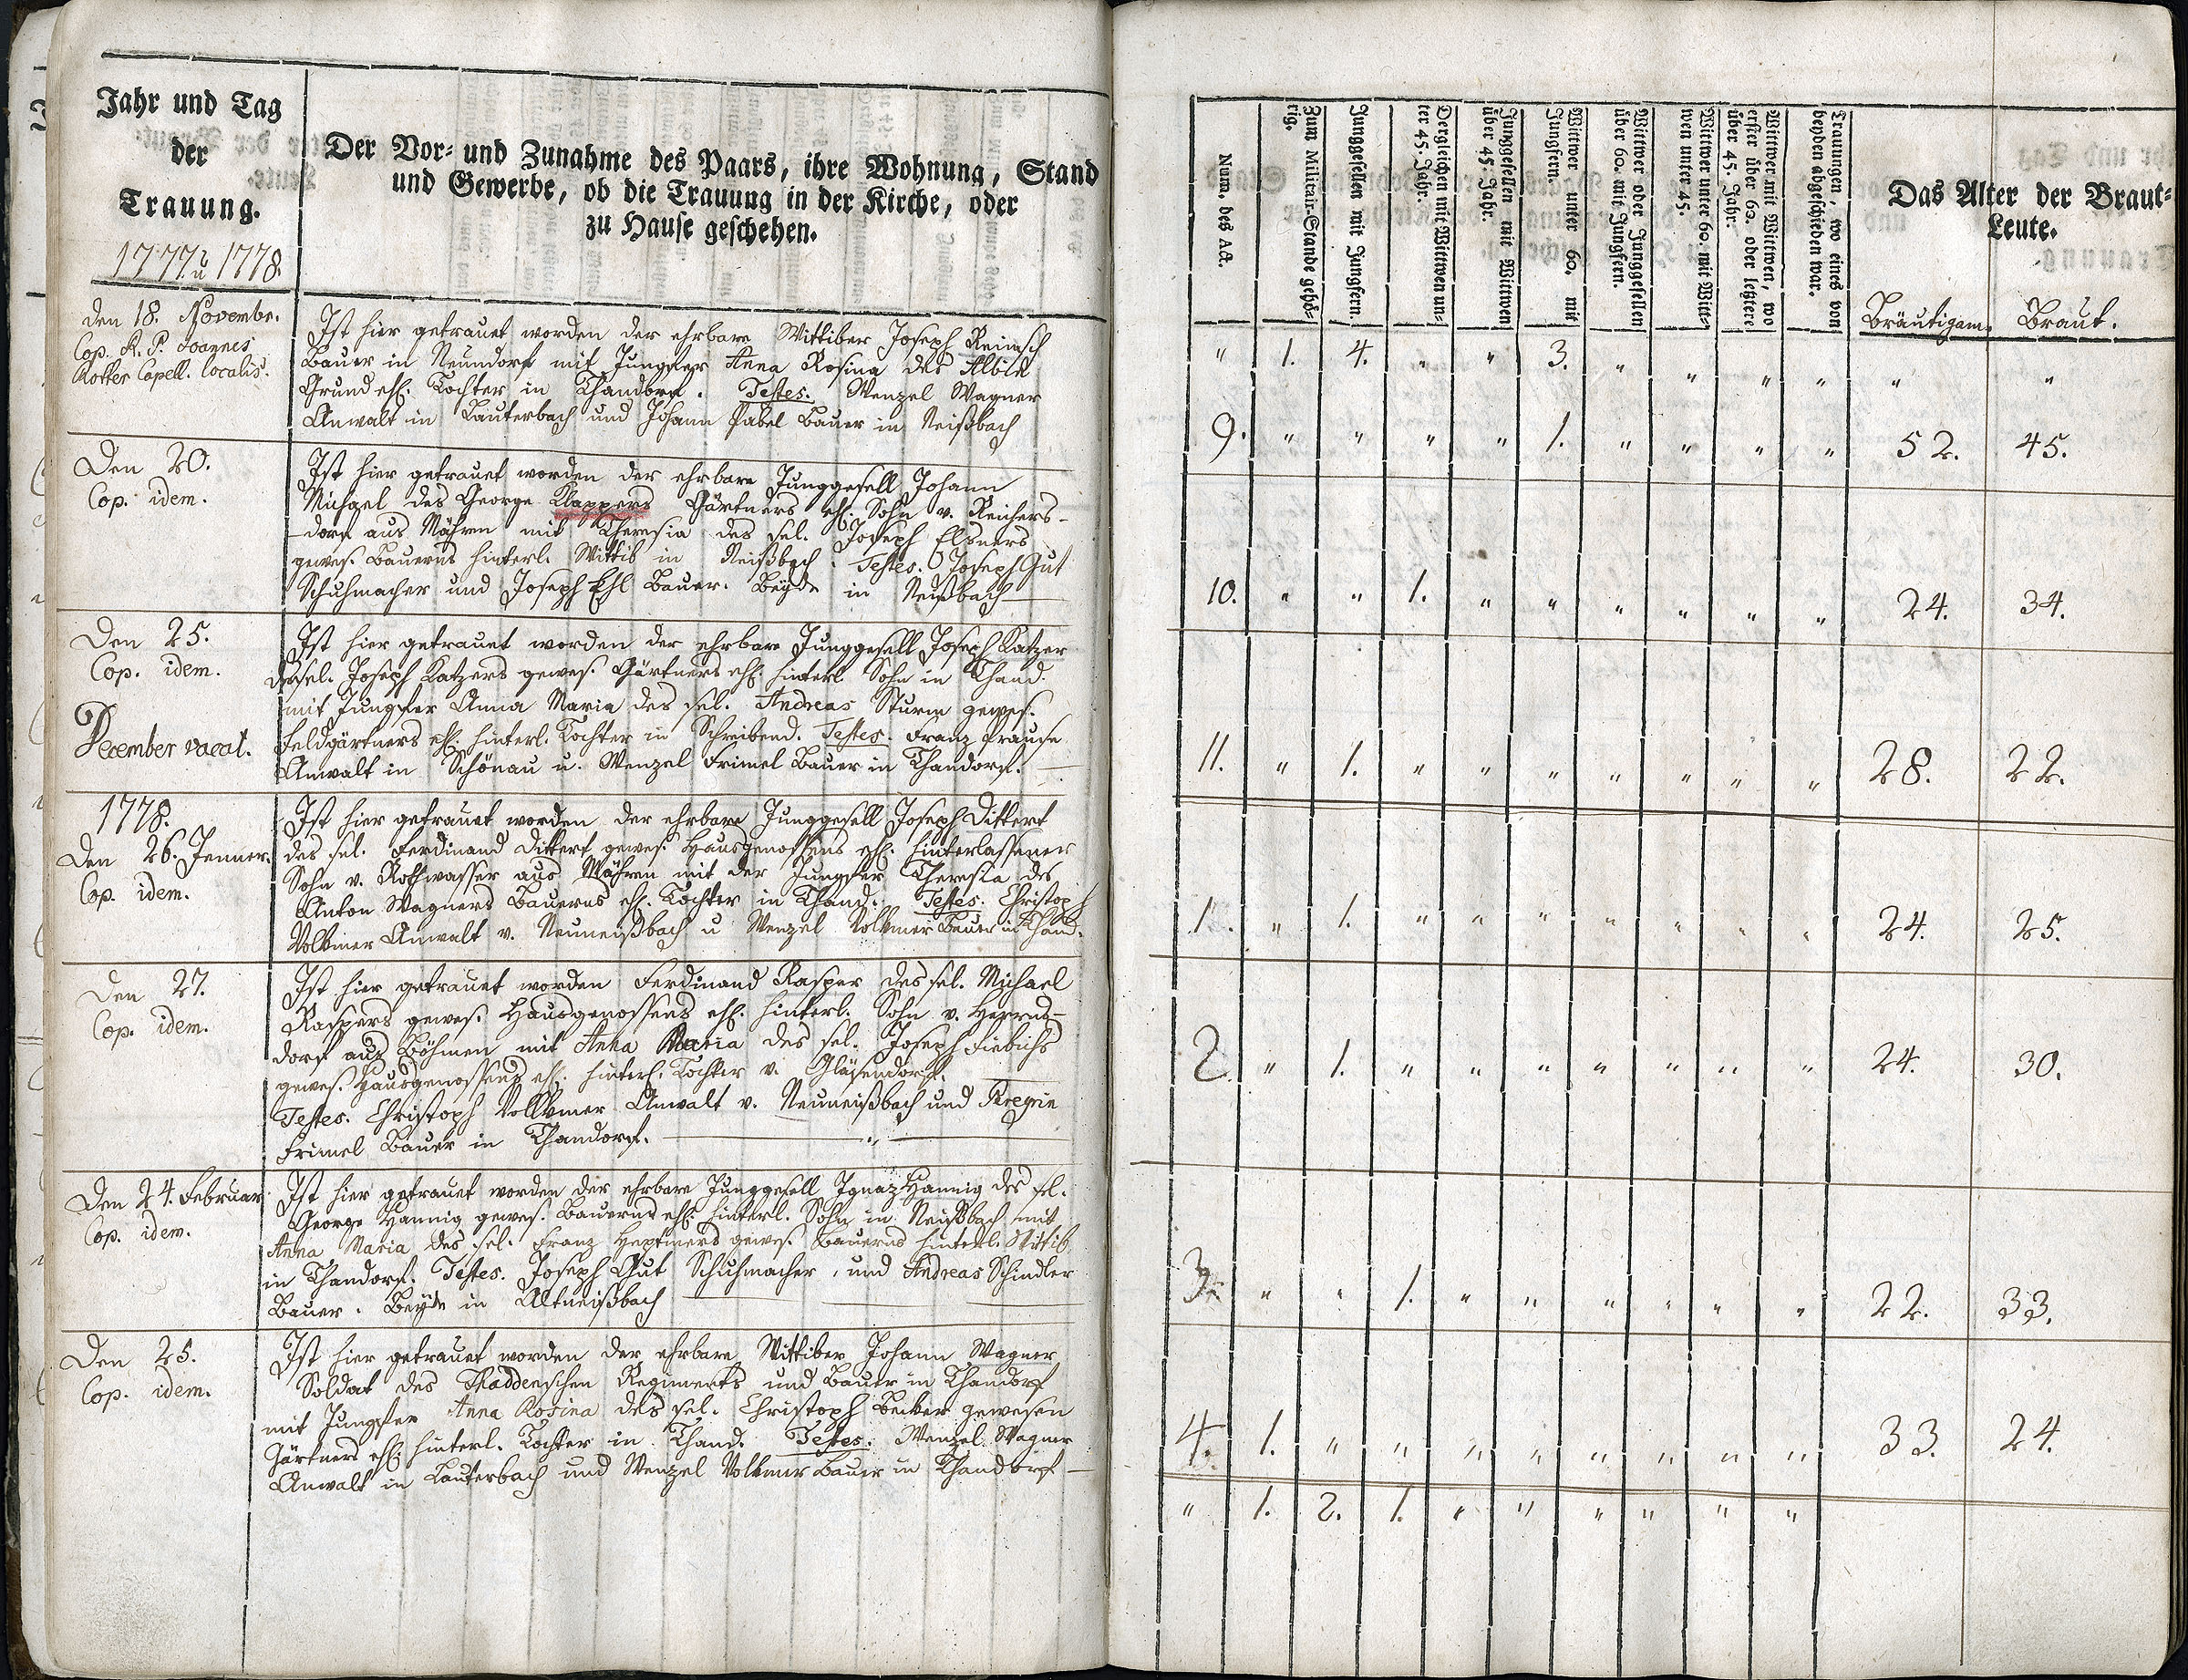 Jahr und Tag
der
Trauung.
1777. u 1778.
Der Vor- und Zunahme des Paars, ihre Wohnung, Stand
und Gewerbe, ob die Trauung in der Kirche, oder
zu Hause geschehen.
Num. des Act.
Zum Militair-Stande gehö-
rig.
Junggesellen mit Jungfern.
Dergleichen mit Wittwen un-
ter 45. Jahr.
Junggesellen mit Wittwen
über 45. Jahr.
Wittwer unter 60. mit
Jungfern.
Wittwer oder Junggesellen
über 60. mit Jungfern.
Wittwer unter 60. mit Witt-
wen unter 45.
Wittwer mit Wittwen, wo
erster über 60. oder letztere
über 45. Jahr.
Trauungen, wo eines von
beyden abgeschieden war.
Das Alter der Braut-
Leute.
Bräutigam. Braut.
" 1. 4. " " 3. " " " " " "
den 18. Novembr.
Cop. R. P. Joannes
Rotter Capell. localis.
Ist hier getrauet worden der ehrbare Wittiber Joseph Reinsch
Bauer in Neundorf mit Jungfer Anna Rosina des Albin
Grund ehl. Tochter in Thandorf. Testes. Wenzel Wagner
Anwalt in Lauterbach und Johann Pabel Bauer in Neißbach
9. " " " " 1. " " " " 52. 45.
Den 20.
Cop. idem.
Ist hier getrauet worden der ehrbare Junggesell Johann
Michael des George Klappers Gärtners ehl. Sohn v. Reichers-
-dorf aus Mähren mit Theresia des sel. Joseph Elsners
gewes. Bauerns hinterl. Wittib in Neißbach. Testes. Joseph Gut
Schuhmacher und Joseph Ehl Bauer. Beyde in Neißbach
10. " " 1. " " " " " " 24. 34.
Den 25.
Cop. idem.
Ist hier getrauet worden der ehrbare Junggesell Joseph Katzer
des sel. Joseph Katzers gewes. Gärtners ehl. hinterl. Sohn in Thand.
mit Jungfer Anna Maria des sel. Andreas Sturm gewes.
Feldgärtners ehl. hinterl. Tochter in Schreibend. Testes. Franz Prause
Anwalt in Schönau u. Wenzel Frimel Bauer in Thandorf.
December vacat.
11. " 1. " " " " " " " 28. 22.
1778.
Den 26. Jenner.
Cop. idem.
Ist hier getrauet worden der ehrbare Junggesell Joseph Dittert
des sel. Ferdinand Dittert gewes. Hausgenossens ehl. hinterlassener
Sohn v. Rothwasser aus Mähren mit der Jungfer Theresia des
Anton Wagners Bauerns ehl. Tochter in Thand. Testes. Christoph
Volkmer Anwalt v. Neuneißbach u Wenzel Volkmer Bauer in Thand.
1. " 1. " " " " " " " 24. 25.
Den 27.
Cop. idem.
Ist hier getrauet worden Ferdinand Rasper des sel. Michael
Raspers gewes. Hausgenossens ehl. hinterl. Sohn v. Herrns-
dorf aus Böhmen mit Anna Maria des sel. Joseph Fiebichs
gewes. Hausgenossens ehl. hinterl. Tochter v. Gläsendorf.
Testes. Christoph Vollkmer Anwalt v. Neuneißbach und Peregrin
Frimel Bauer in Thandorf. "
2. " 1. " " " " " " " 24. 30.
Den 24. Februar.
Cop. idem.
Ist hier getrauet worden der ehrbare Junggesell Ignaz Hannig des sel.
George Hannig gewes. Bauerns ehl. hinterl. Sohn in Neißbach mit
Anna Maria des sel. Franz Heptners gewes. Bauerns hinterl. Wittib
in Thandorf. Testes. Joseph Gut Schuhmacher, und Andreas Schindler
Bauer. Beyde in Altneißbach
3. " " 1. " " " " " " 22. 33.
Den 25.
Cop. idem.
Ist hier getrauet worden der ehrbare Wittiber Johann Wagner
Soldat des Thaddenschen Regiments und Bauer in Thandorf
mit Jungfer Anna Rosina des sel. Christoph Becker gewesen
Gärtners ehl. hinterl. Tochter in Thand. Testes. Wenzel Wagner
Anwalt in Lauterbach und Wenzel Volkmer Bauer in Thandorf
4. 1. " " " " " " " " 33. 24.
" 1. 2. 1. " " " " " "